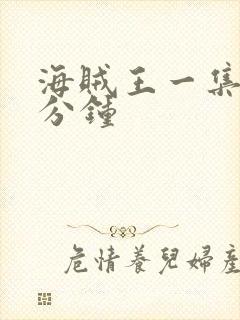 海贼王一集
分鍾
危情養兒婦產